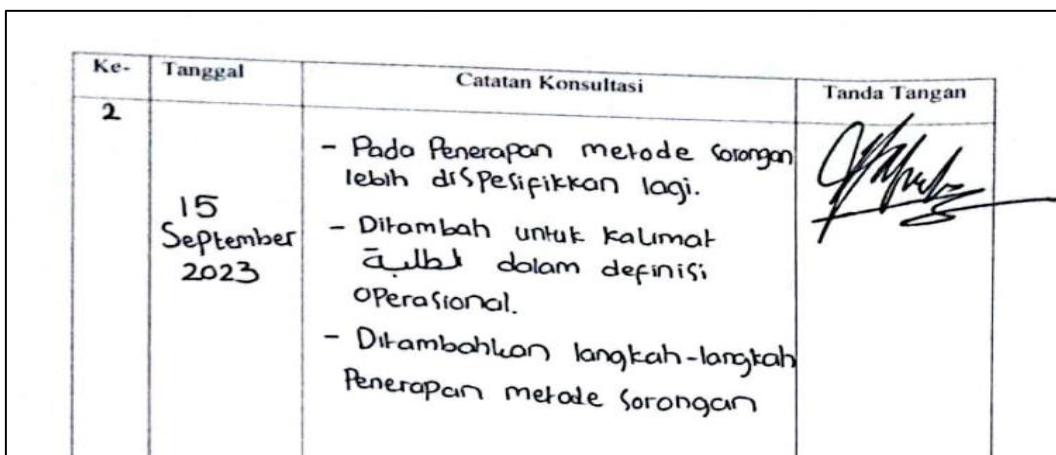 Ke- Tanggal Catatan Konsultasi Tanda Tangan
2
15
September
2023
- Pada Penerapan metode sorongan
lebih dispesifikkan lagi.
- Ditambah untuk kalimat
لطلبة dalam definisi
operasional.
- Ditambahkan langkah-langkah
Penerapan metode sorongan